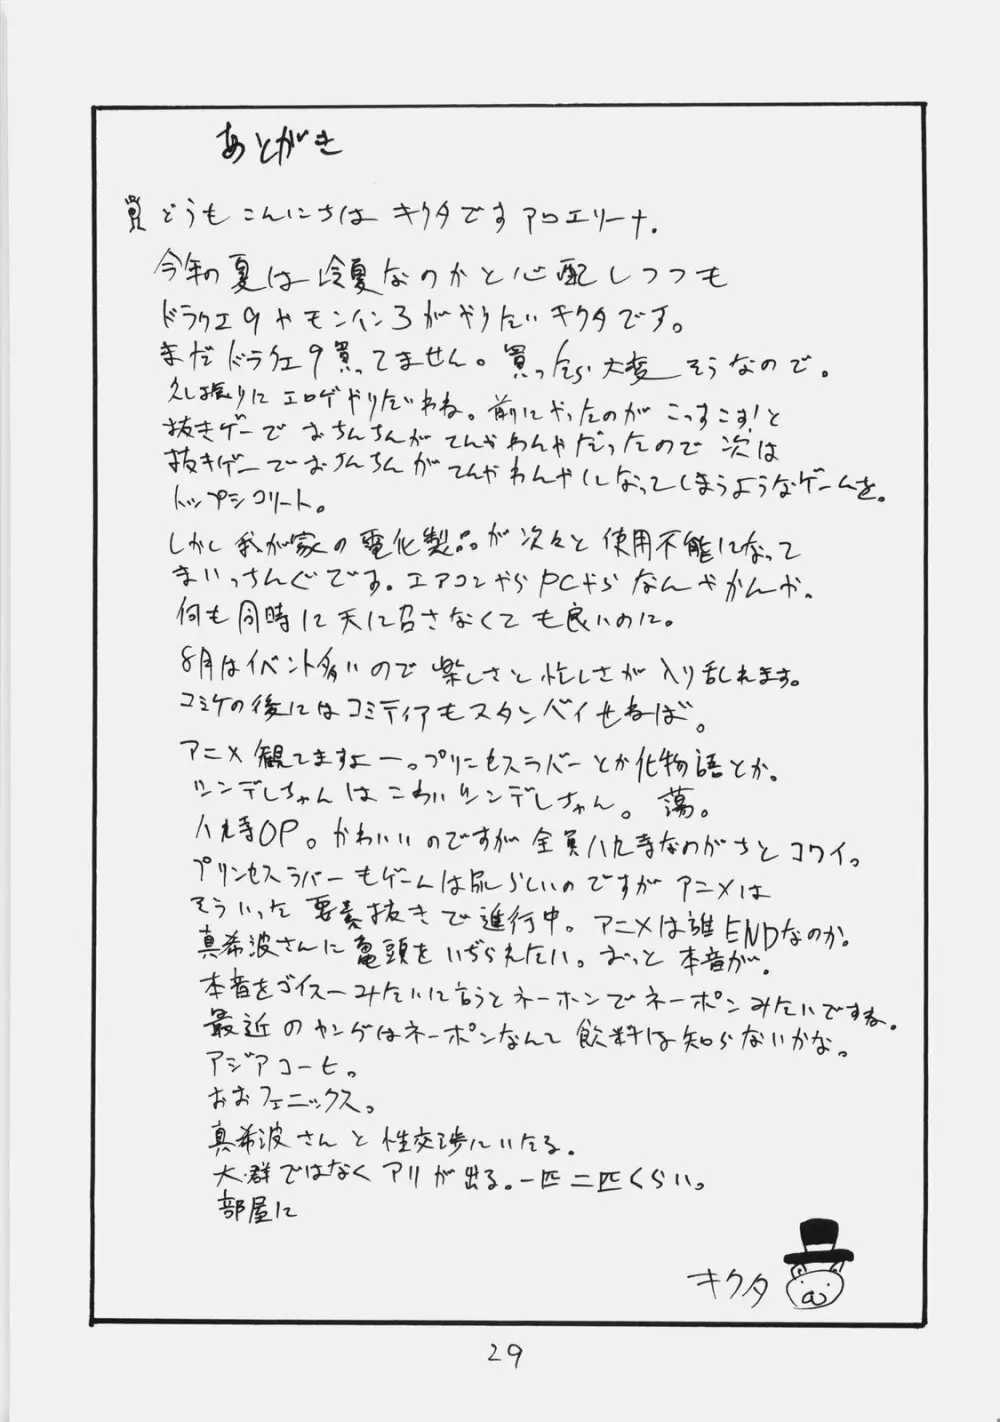 あとがき
どうもこんにちは キクタです アロエリーナ.
今年の夏は冷夏なのかと心配しつつも
ドラクエ9やモンハン3がやりたいキクタです。
まだドラクエ9買ってません。買ったら大変そうなので。
久し振りにエロゲやりたいわね。前にやったのがこっすこす!と
抜きゲーでおちんちんがてんやわんやだったので次は
抜きゲーでおちんちんがてんやわんやになってしまうようなゲームを。
トップシコリート。
しかし我が家の電化製品が次々と使用不能になって
まいっちんぐです。エアコンやらPCやらなんやかんや。
何も同時に天に召さなくても良いのに。
8月はイベント多いので楽しさと忙しさが入り乱れます。
コミケの後にはコミティアもスタンバイせねば。
アニメ観てますよー。プリンセスラバーとか化物語とか。
ツンデレちゃんはこわいツンデレちゃん。蕩。
八九寺OP。かわいいのですが全員八九寺なのがちとコワイ。
プリンセスラバーもゲームは尻らしいのですがアニメは
そういった要素抜きで進行中。アニメは誰ENDなのか。
真希波さんに亀頭をいぢらえたい。おっと本音が。
本音をゴイスーみたいに言うとネーホンでネーポンみたいですね。
最近のヤングはネーポンなんて飲料は知らないかな。
アジアコーヒ。
おおフェニックス。
真希波さんと性交渉にいたる。
大群ではなくアリが出る。一匹二匹くらい。
部屋に
キクタ
29